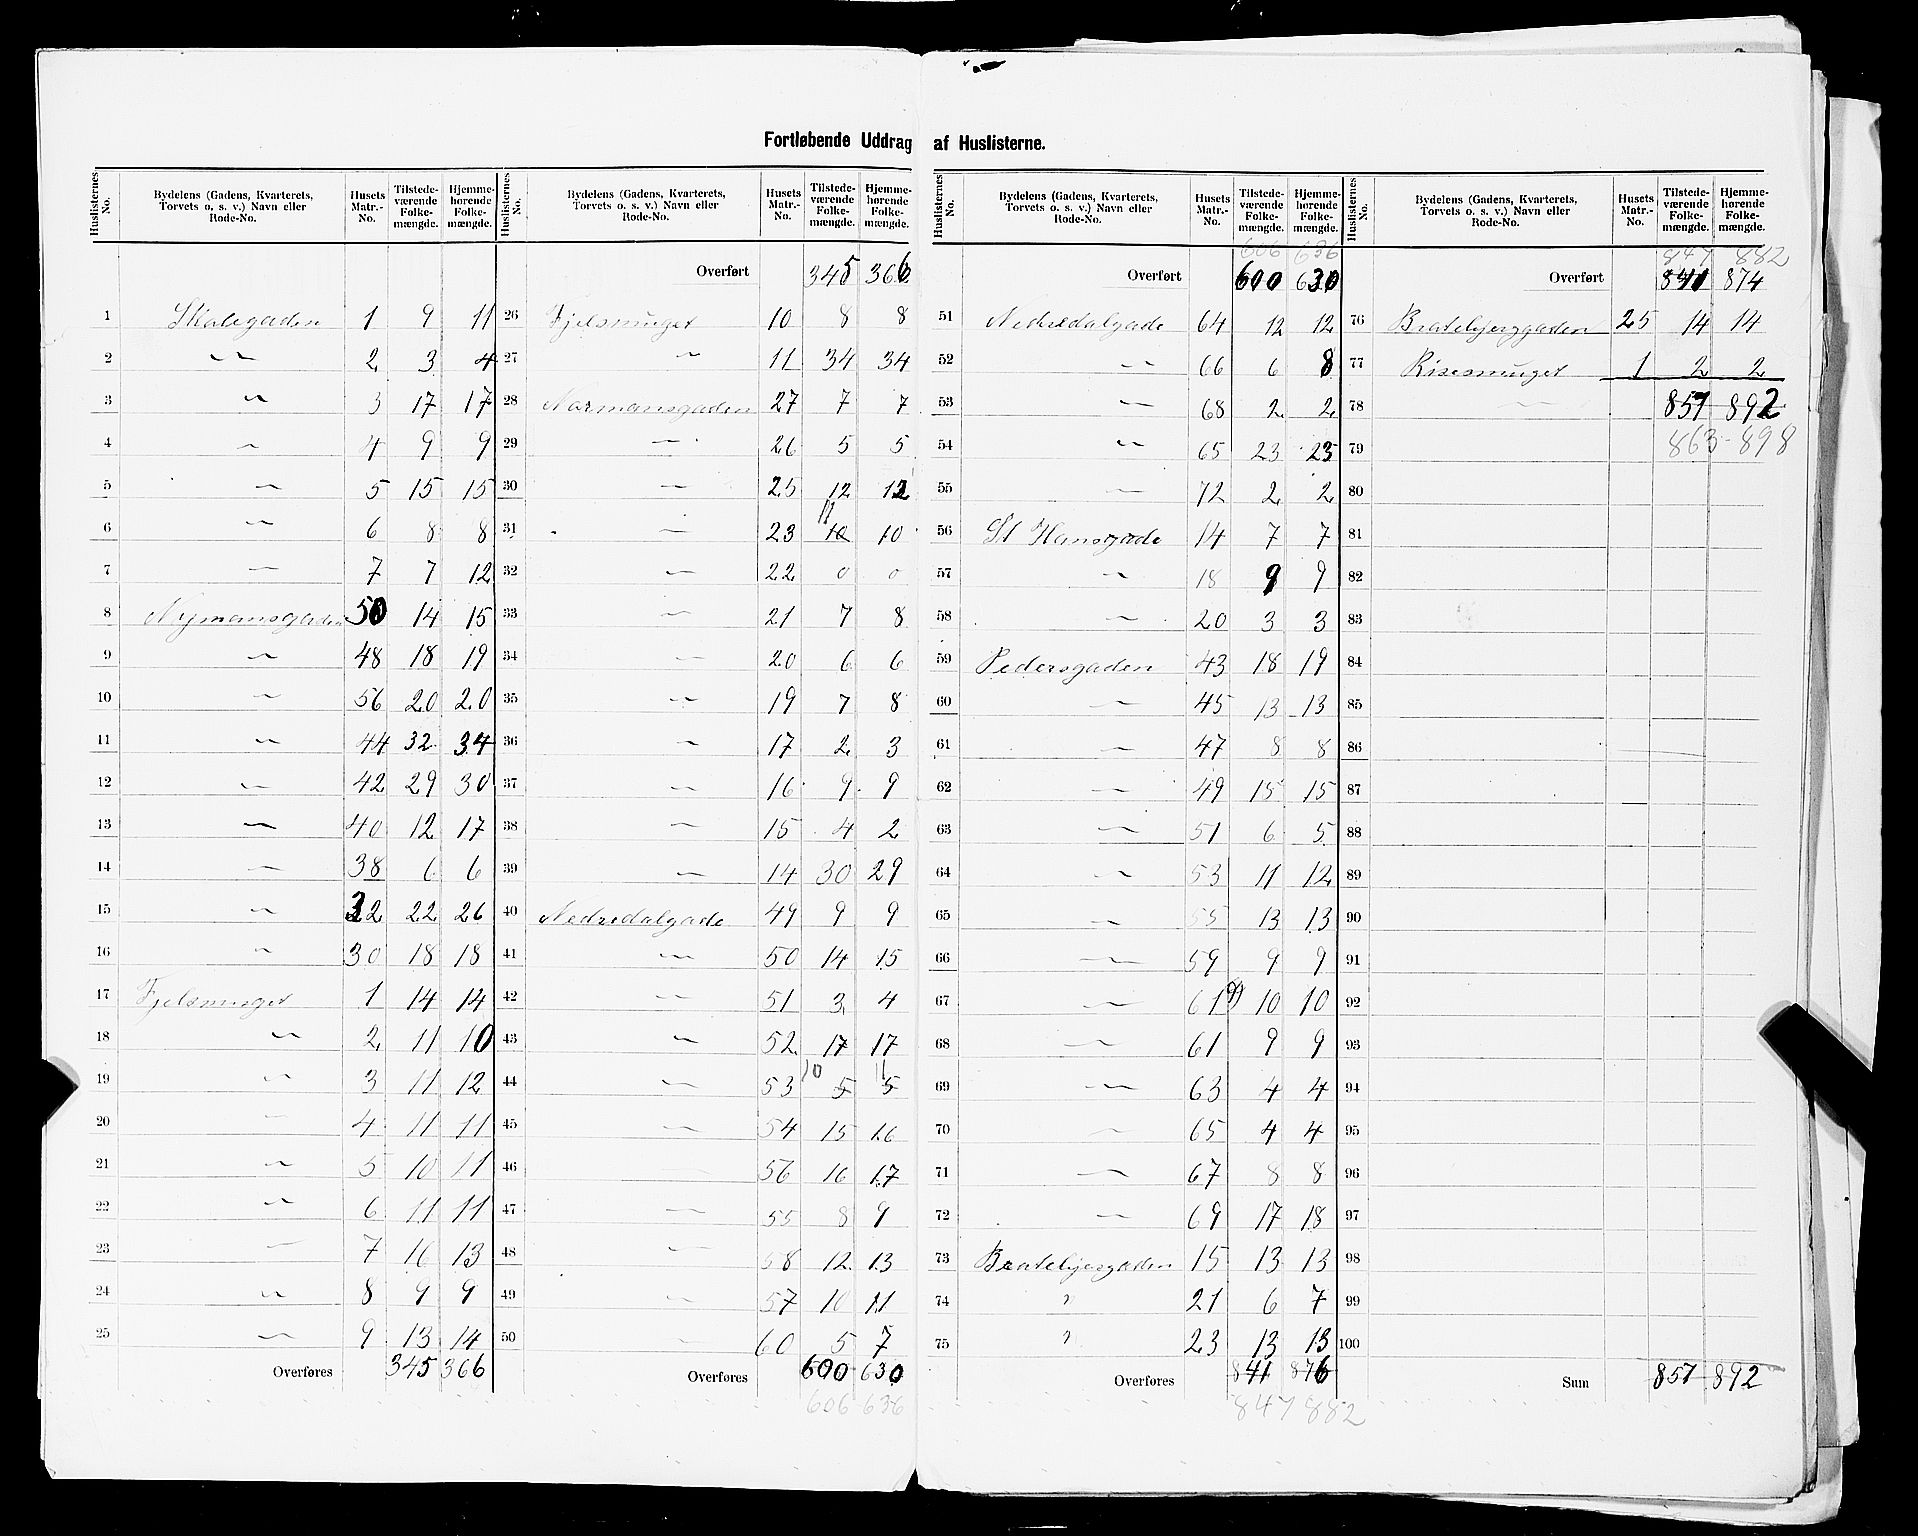 Fortløbende Uddrag af Huslisterne.
Huslisternes No. Bydelens (Gadens, Kvarterets, Torvets o. s. v.) Navn eller Rode-No. Husets Matr.-No. Tilstedeværende Folkemængde. Hjemmehørende Folkemængde.
1 Skolegaden 1 9 11
2 〃 2 3 4
3 〃 3 17 17
4 〃 4 9 9
5 〃 5 15 15
6 〃 6 8 8
7 〃 7 7 12
8 Nymansgaden 50 14 15
9 〃 48 18 19
10 〃 56 20 20
11 〃 44 32 34
12 〃 42 29 30
13 〃 40 12 17
14 〃 38 6 6
15 〃 32 22 26
16 〃 30 18 18
17 Fjelsmuget 1 14 14
18 〃 2 11 10
19 〃 3 11 12
20 〃 4 11 11
21 〃 5 10 11
22 〃 6 11 11
23 〃 7 16 13
24 〃 8 9 9
25 〃 9 13 14
Overføres 345 366
Huslisternes No. Bydelens (Gadens, Kvarterets, Torvets o. s. v.) Navn eller Rode-No. Husets Matr.-No. Tilstedeværende Folkemængde. Hjemmehørende Folkemængde.
Overført 345 366
26 Fjelsmuget 10 8 8
27 〃 11 34 34
28 Normansgaden 27 7 7
29 〃 26 5 5
30 〃 25 12 12
31 〃 23 11 10 10
32 〃 22 0 0
33 〃 21 7 8
34 〃 20 6 6
35 〃 19 7 8
36 〃 17 2 3
37 〃 16 9 9
38 〃 15 4 2
39 〃 14 30 29
40 Nedredalgade 49 9 9
41 〃 50 14 15
42 〃 51 3 4
43 〃 52 17 17
44 〃 53 10 5 11 5
45 〃 54 15 16
46 56 16 17
47 〃 55 8 9
48 〃 58 12 13
49 〃 57 10 11
50 〃 60 5 7
Overføres 600 630
606 636
Huslisternes No. Bydelens (Gadens, Kvarterets, Torvets o. s. v.) Navn eller Rode-No. Husets Matr.-No. Tilstedeværende Folkemængde. Hjemmehørende Folkemængde.
606 636
Overført 600 630
51 Nedredalgade 64 12 12
52 〃 66 6 8
53 〃 68 2 2
54 〃 65 23 23
55 〃 72 2 2
56 St Hansgade 14 7 7
57 〃 18 9 9
58 〃 20 3 3
59 Pedersgaden 43 18 19
60 〃 45 13 13
61 〃 47 8 8
62 〃 49 15 15
63 〃 51 6 5
64 〃 53 11 12
65 〃 55 13 13
66 〃 59 9 9
67 〃 61 10 10
68 〃 61 9 9
69 〃 63 4 4
70 〃 65 4 4
71 〃 67 8 8
72 〃 69 17 18
73 Bratebjergaden 15 13 13
74 〃 21 6 7
75 〃 23 13 13
Overføres 841 876
847 882
Huslisternes No. Bydelens (Gadens, Kvarterets, Torvets o. s. v.) Navn eller Rode-No. Husets Matr.-No. Tilstedeværende Folkemængde. Hjemmehørende Folkemængde.
847 882
Overført 841 874
76 Bratebjerggaden 25 14 14
77 Risesmuget 1 2 2
78 〃 857 892
79 863 - 898
80
81
82
83
84
85
86
87
88
89
90
91
92
93
94
95
96
97
98
99
100
Sum 857 892